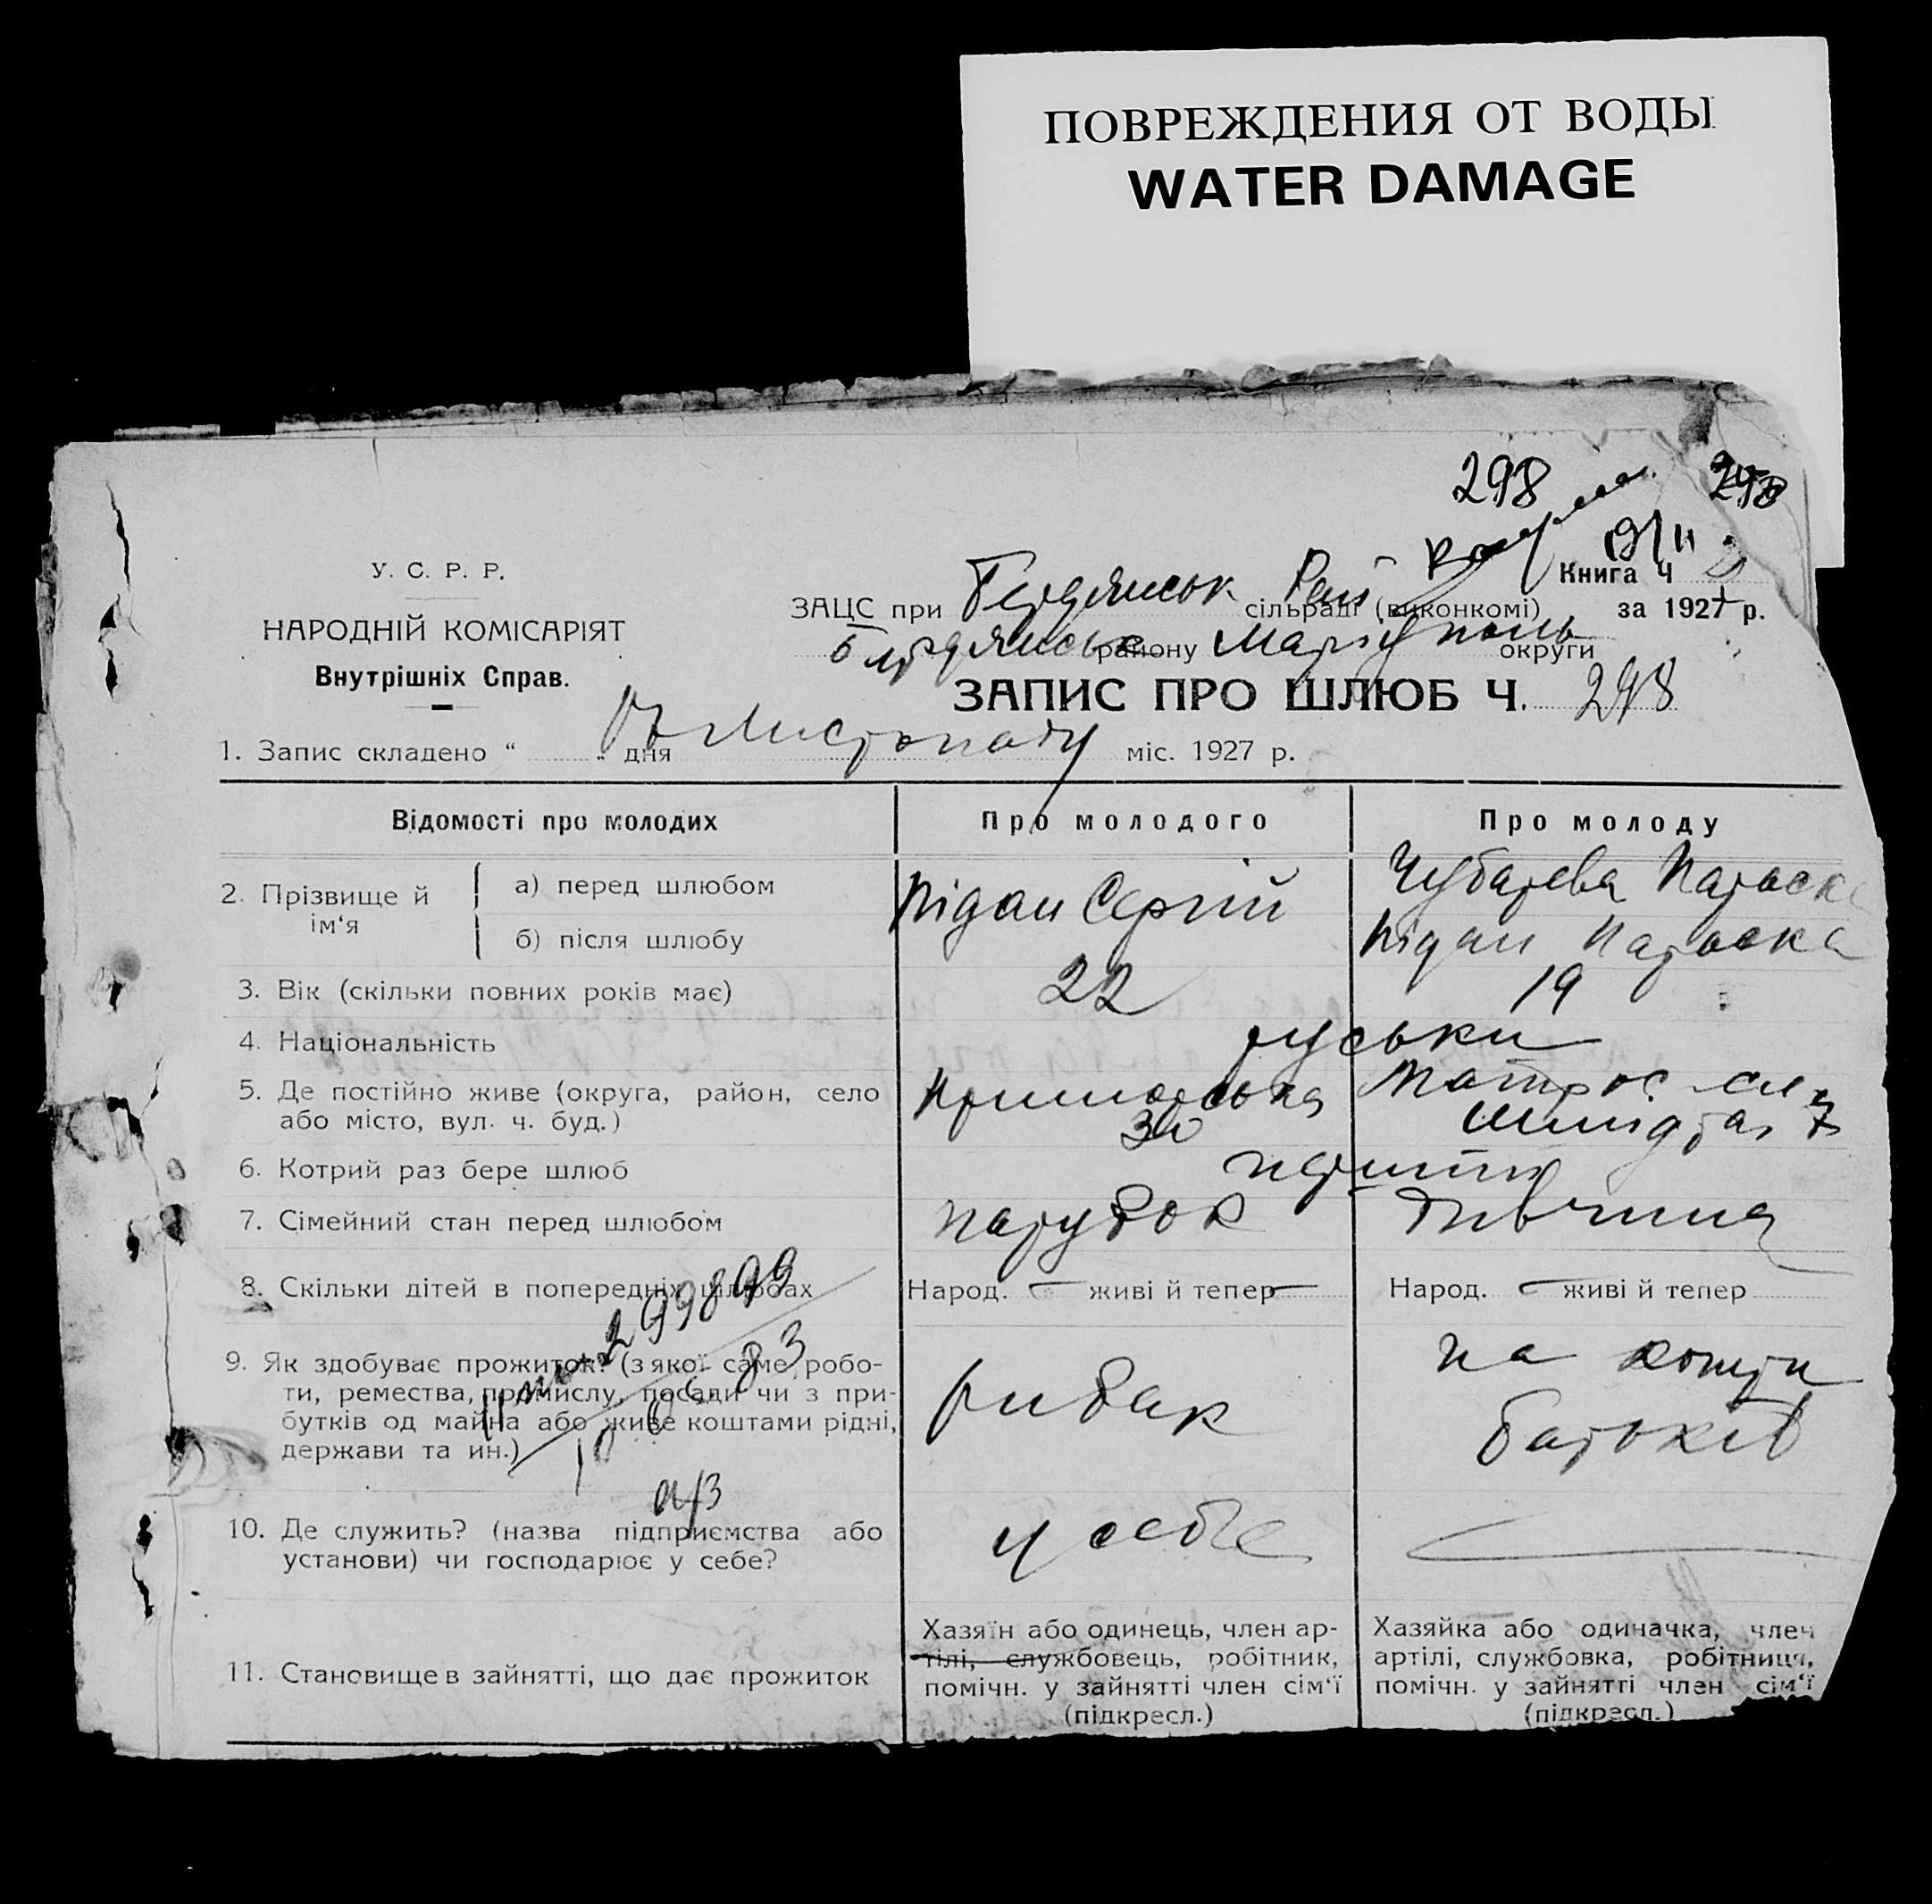 ПОВРЕЖДЕНИЯ ОТ ВОДЫ
WATER DAMAGE
298
298
У. С. Р. Р.
НАРОДНІЙ КОМІСАРІЯТ
Внутрішніх Справ.
Книга Ч
ЗАЦС при Бердянськ Рай сільраді (виконкомі) за 1927 р.
Бердянськ району Маріуполь округи
ЗАПИС ПРО ШЛЮБ Ч. 298
1. Запис складено “ „ дня Листопаду міс. 1927 р.
Відомості про молодих Про молодого Про молоду
2. Прізвище й ім‘я
а) перед шлюбом Підан Сергій Чубарева Параска
б) після шлюбу Підан Параска
3. Вік (скільки повних років має) 22 19
4. Національність руськи
5. Де постійно живе (округа, район, село Приморська Матрос
або місто, вул. ч. буд.) 30 Шмидта 7
6. Котрий раз бере шлюб
7. Сімейний стан перед шлюбом парубок дівчина
8. Скільки дітей в попередніх шлюбах Народ. — живі й тепер — Народ. — живі й тепер
9. Як здобуває прожиток? (з якої саме робо-
ти, ремества, промислу, посади чи з при-
бутків од майна або живе коштами рідні,
держави та ин.)
рибак
на кошти
батьків
10. Де служить? (назва підприємства або
установи) чи господарює у себе?
у себе
11. Становище в зайнятті, що дає прожиток
Хазяїн або одинець, член ар-
тілі, службовець, робітник,
помічн. у зайнятті член сім‘ї
(підкресл.)
Хазяйка або одиначка, член
артілі, службовка, робітниця,
помічн. у зайнятті член сім‘ї
(підкресл.)